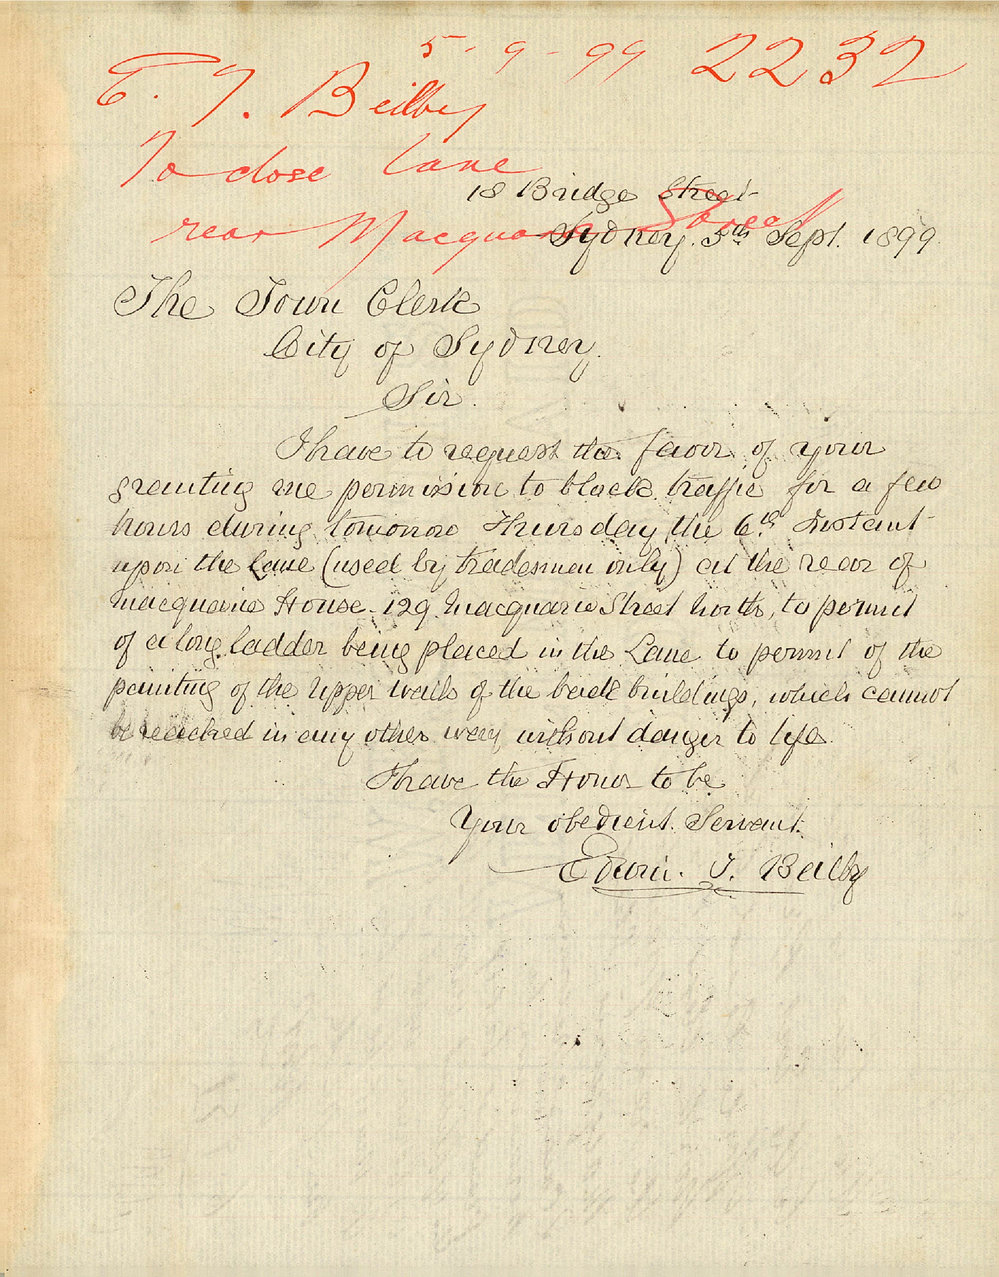 5-9-99 2232
E. T. Beilby
To close lane
rear Macquarie Street
18 Bridge Street
Sydney. 5th Sept. 1899.
The Town Clerk
City of Sydney.
Sir.
I have to request the favor of your
granting me permission to block traffic for a few
hours during tomorrow Thursday the 6th Instant
upon the Lane (used by tradesmen only) at the rear of
Macquarie House. 129. Macquarie Street North, to permit
of a long ladder being placed in the Lane to permit of the
painting of the upper walls of the back buildings, which cannot
be reached in any other way without danger to life.
I have the Honor to be
Your obedient. Servant.
Edwin. T. Beilby